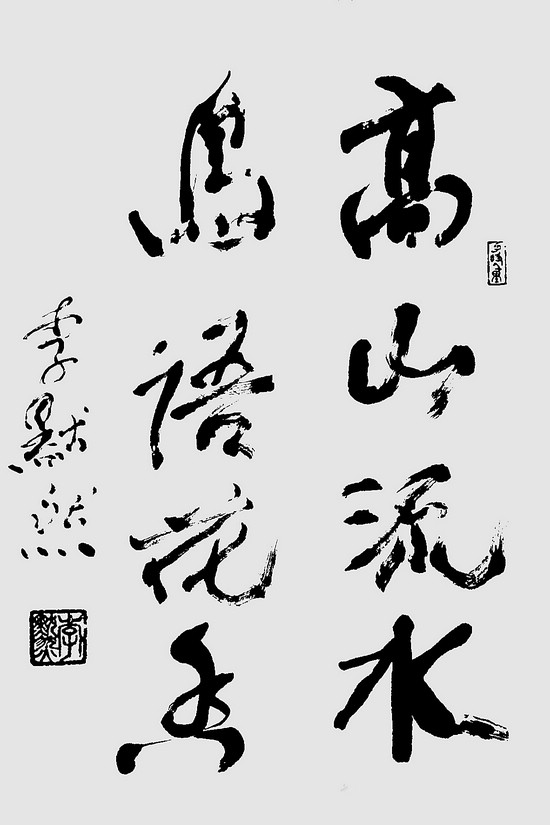 高山流水
鳥語花香
李默然